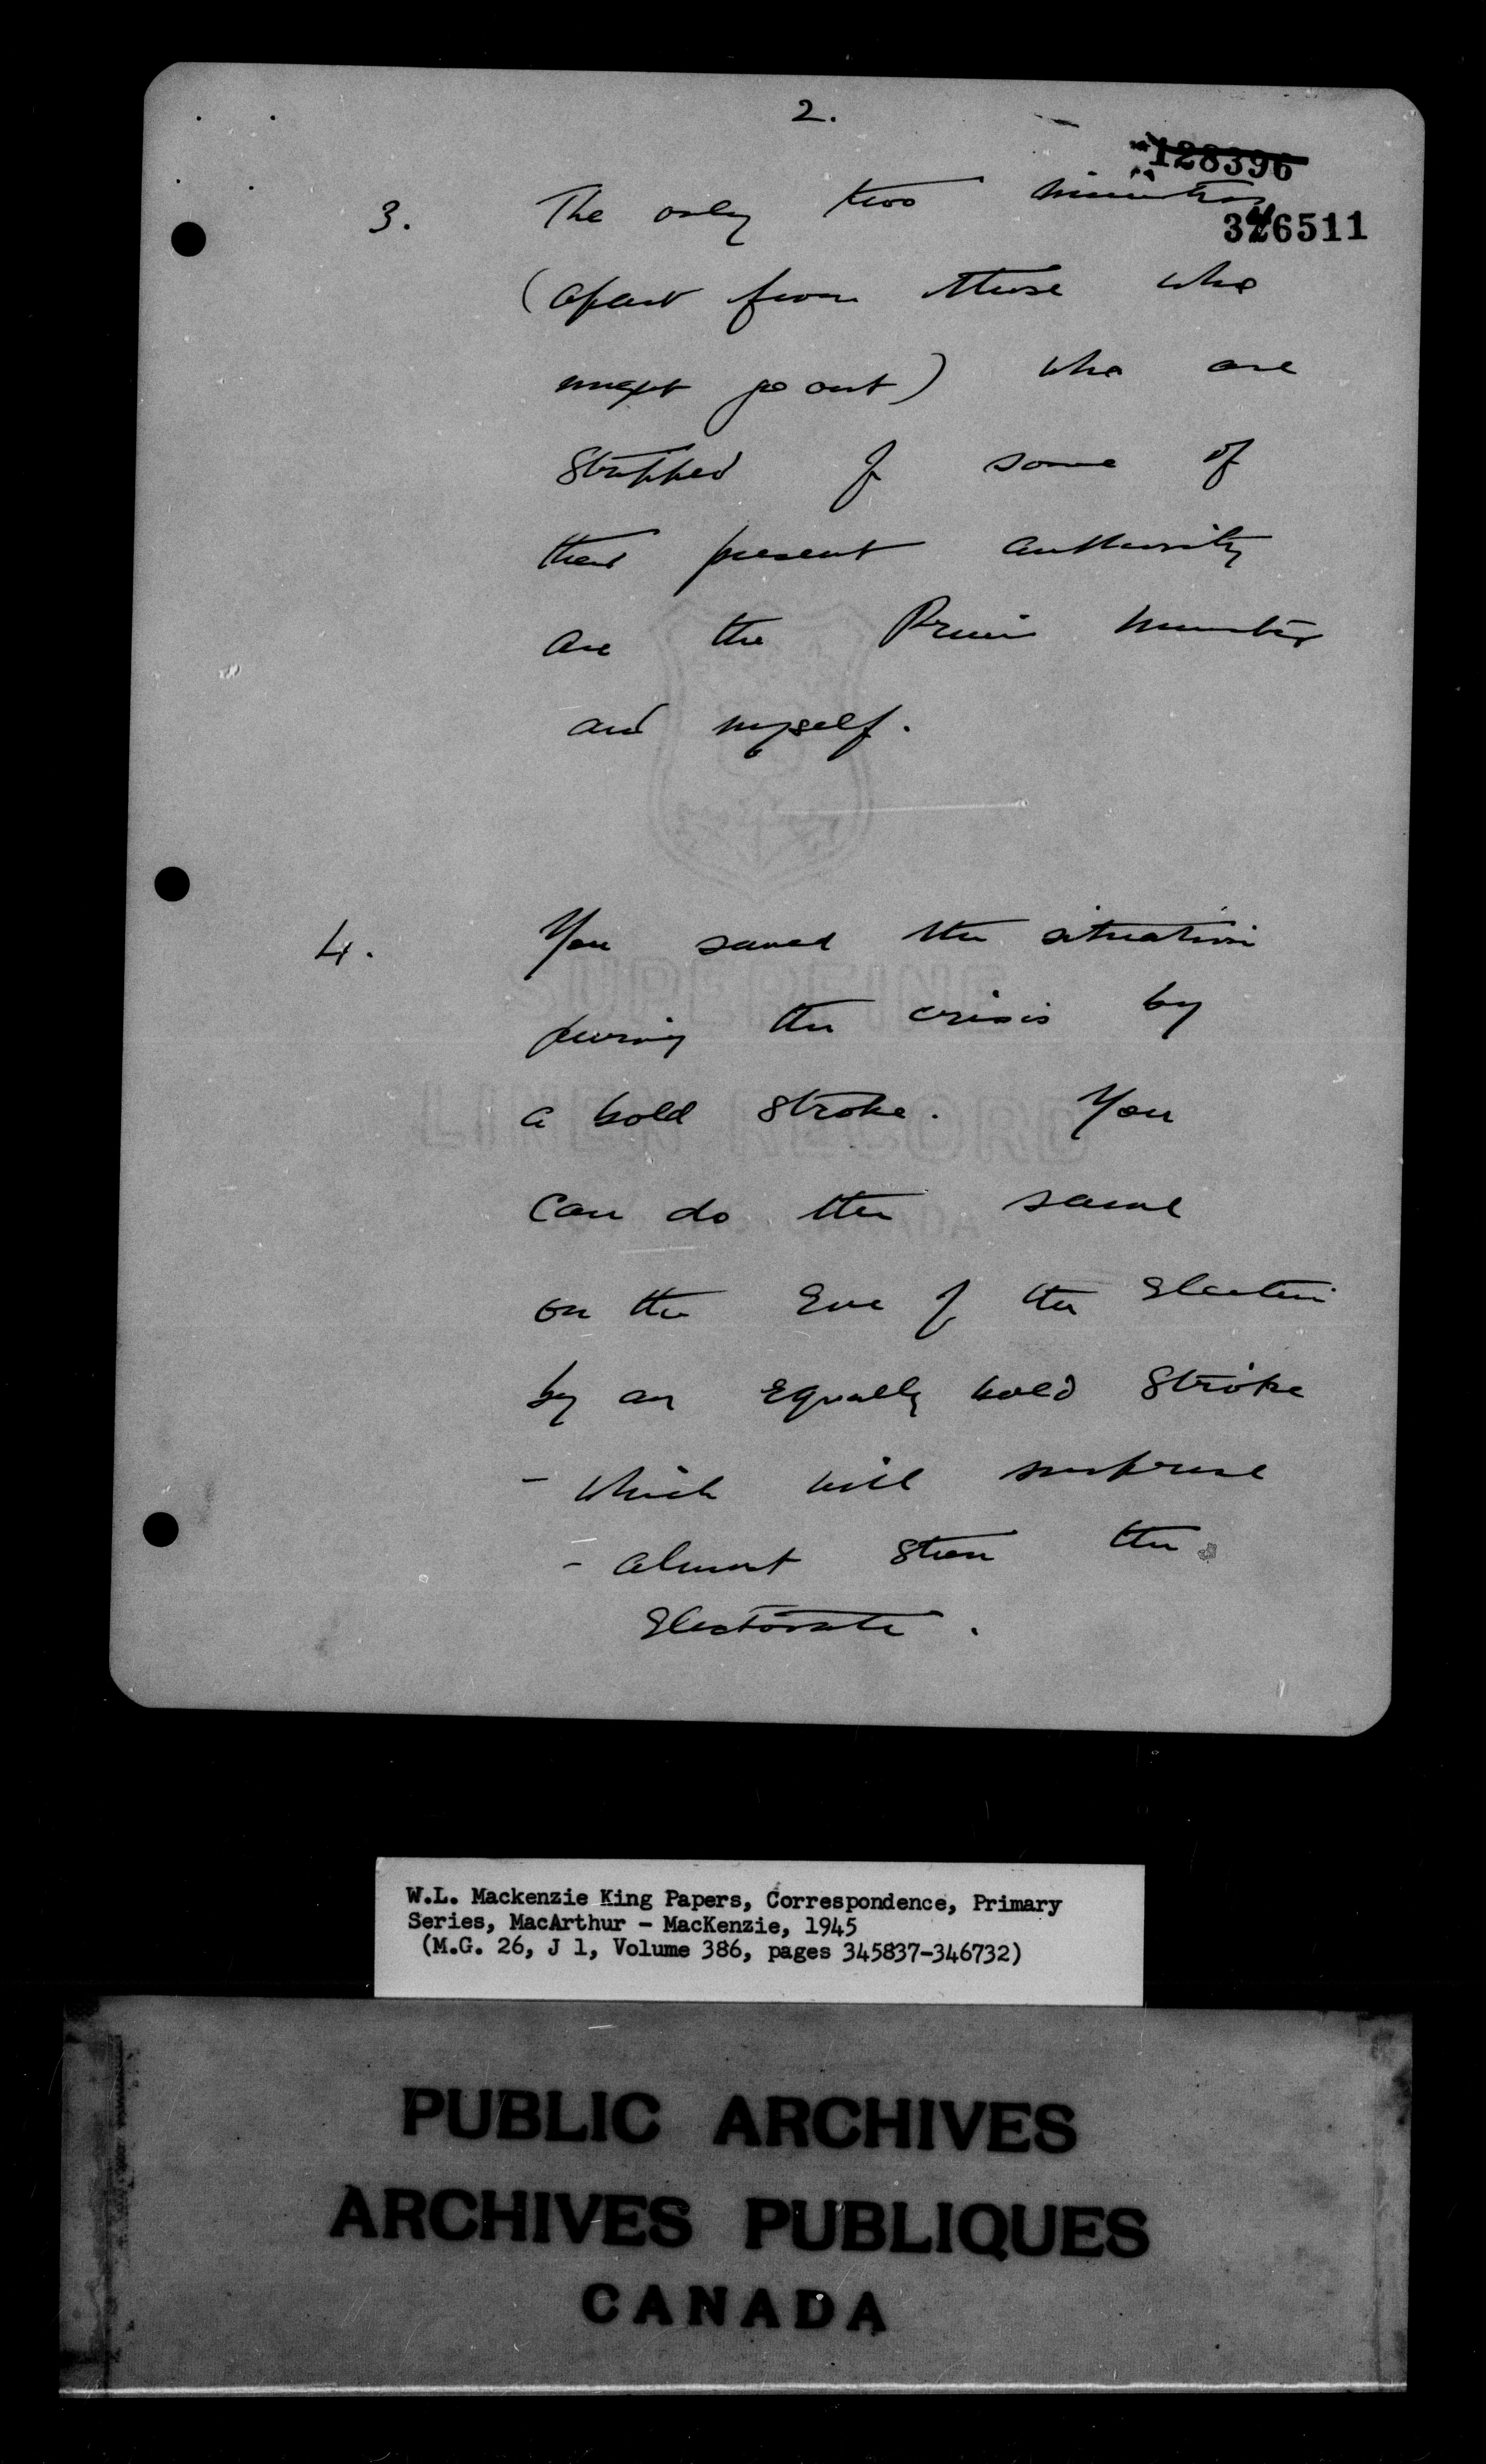 2.
128396
346511
3. The only two ministers
(apart from those who
might go out) who are
stripped of some of
their present authority
are the Prime Minister
and myself.
4. You saved the situation
during the crisis by
a bold stroke. You
can do the same
on the Eve of the Election
by an Equally bold stroke
- which will surprise
- almost stun the
Electorate.
SUPERFINE
LINEN RECORD
CANADA
W.L. Mackenzie King Papers, Correspondence, Primary
Series, MacArthur - MacKenzie, 1945
(M.G. 26, J 1, Volume 386, pages 345837-346732)
PUBLIC ARCHIVES
ARCHIVES PUBLIQUES
CANADA